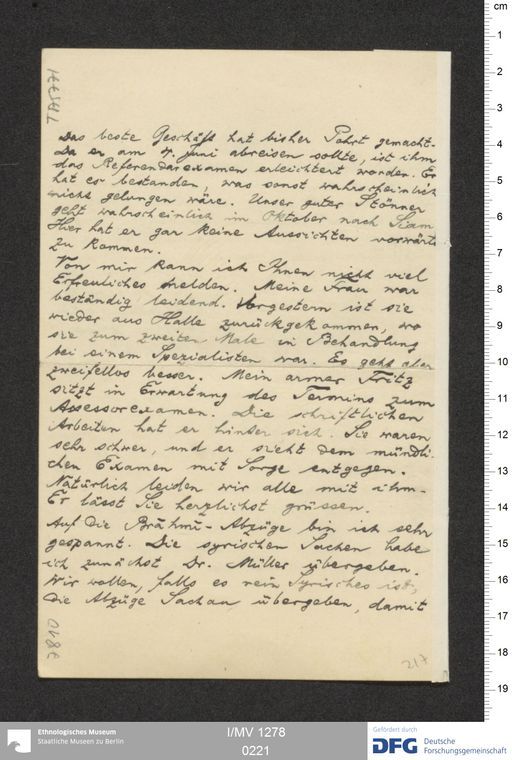 Das beste Geschäft hat bisher Pohrt gemacht.
Da er am 4. Juni abreisen sollte, ist ihm
das Referendarexamen erleichtert worden. Er
hat es bestanden, was sonst wahrscheinlich
nicht gelungen wäre. Unser guter Stönner
geht wahrscheinlich im Oktober nach Siam.
Hier hat er gar keine Aussichten vorwärts
zu kommen.
Von mir kann ich Ihnen nicht viel
Erfreuliches melden. Meine Frau war
beständig leidend. Vorgestern ist sie
wieder aus Halle zurückgekommen, wo
sie zum zweiten Male in Behandlung
bei einem Spezialisten war. Es geht aber
zweifellos besser. Mein armer Fritz
sitzt in Erwartung des Termins zum
Assessorexamen. Die schriftlichen
Arbeiten hat er hinter sich. Sie waren
sehr schwer, und er sieht dem mündli-
chen Examen mit Sorge entgegen.
Natürlich leiden wir alle mit ihm.
Er lässt Sie herzlichst grüssen.
Auf die Brāhmī-Abzüge bin ich sehr
gespannt. Die syrischen Sachen habe
ich zunächst Dr. Müller übergeben.
Wir wollen, falls es rein Syrisches ist,
die Abzüge Sachau übergeben, damit
217
cm
1
2
3
4
5
6
7
8
9
10
11
12
13
14
15
16
17
18
19
Ethnologisches Museum
Staatliche Museen zu Berlin
I/MV 1278
0221
Gefördert durch
DFG
Deutsche
Forschungsgemeinschaft